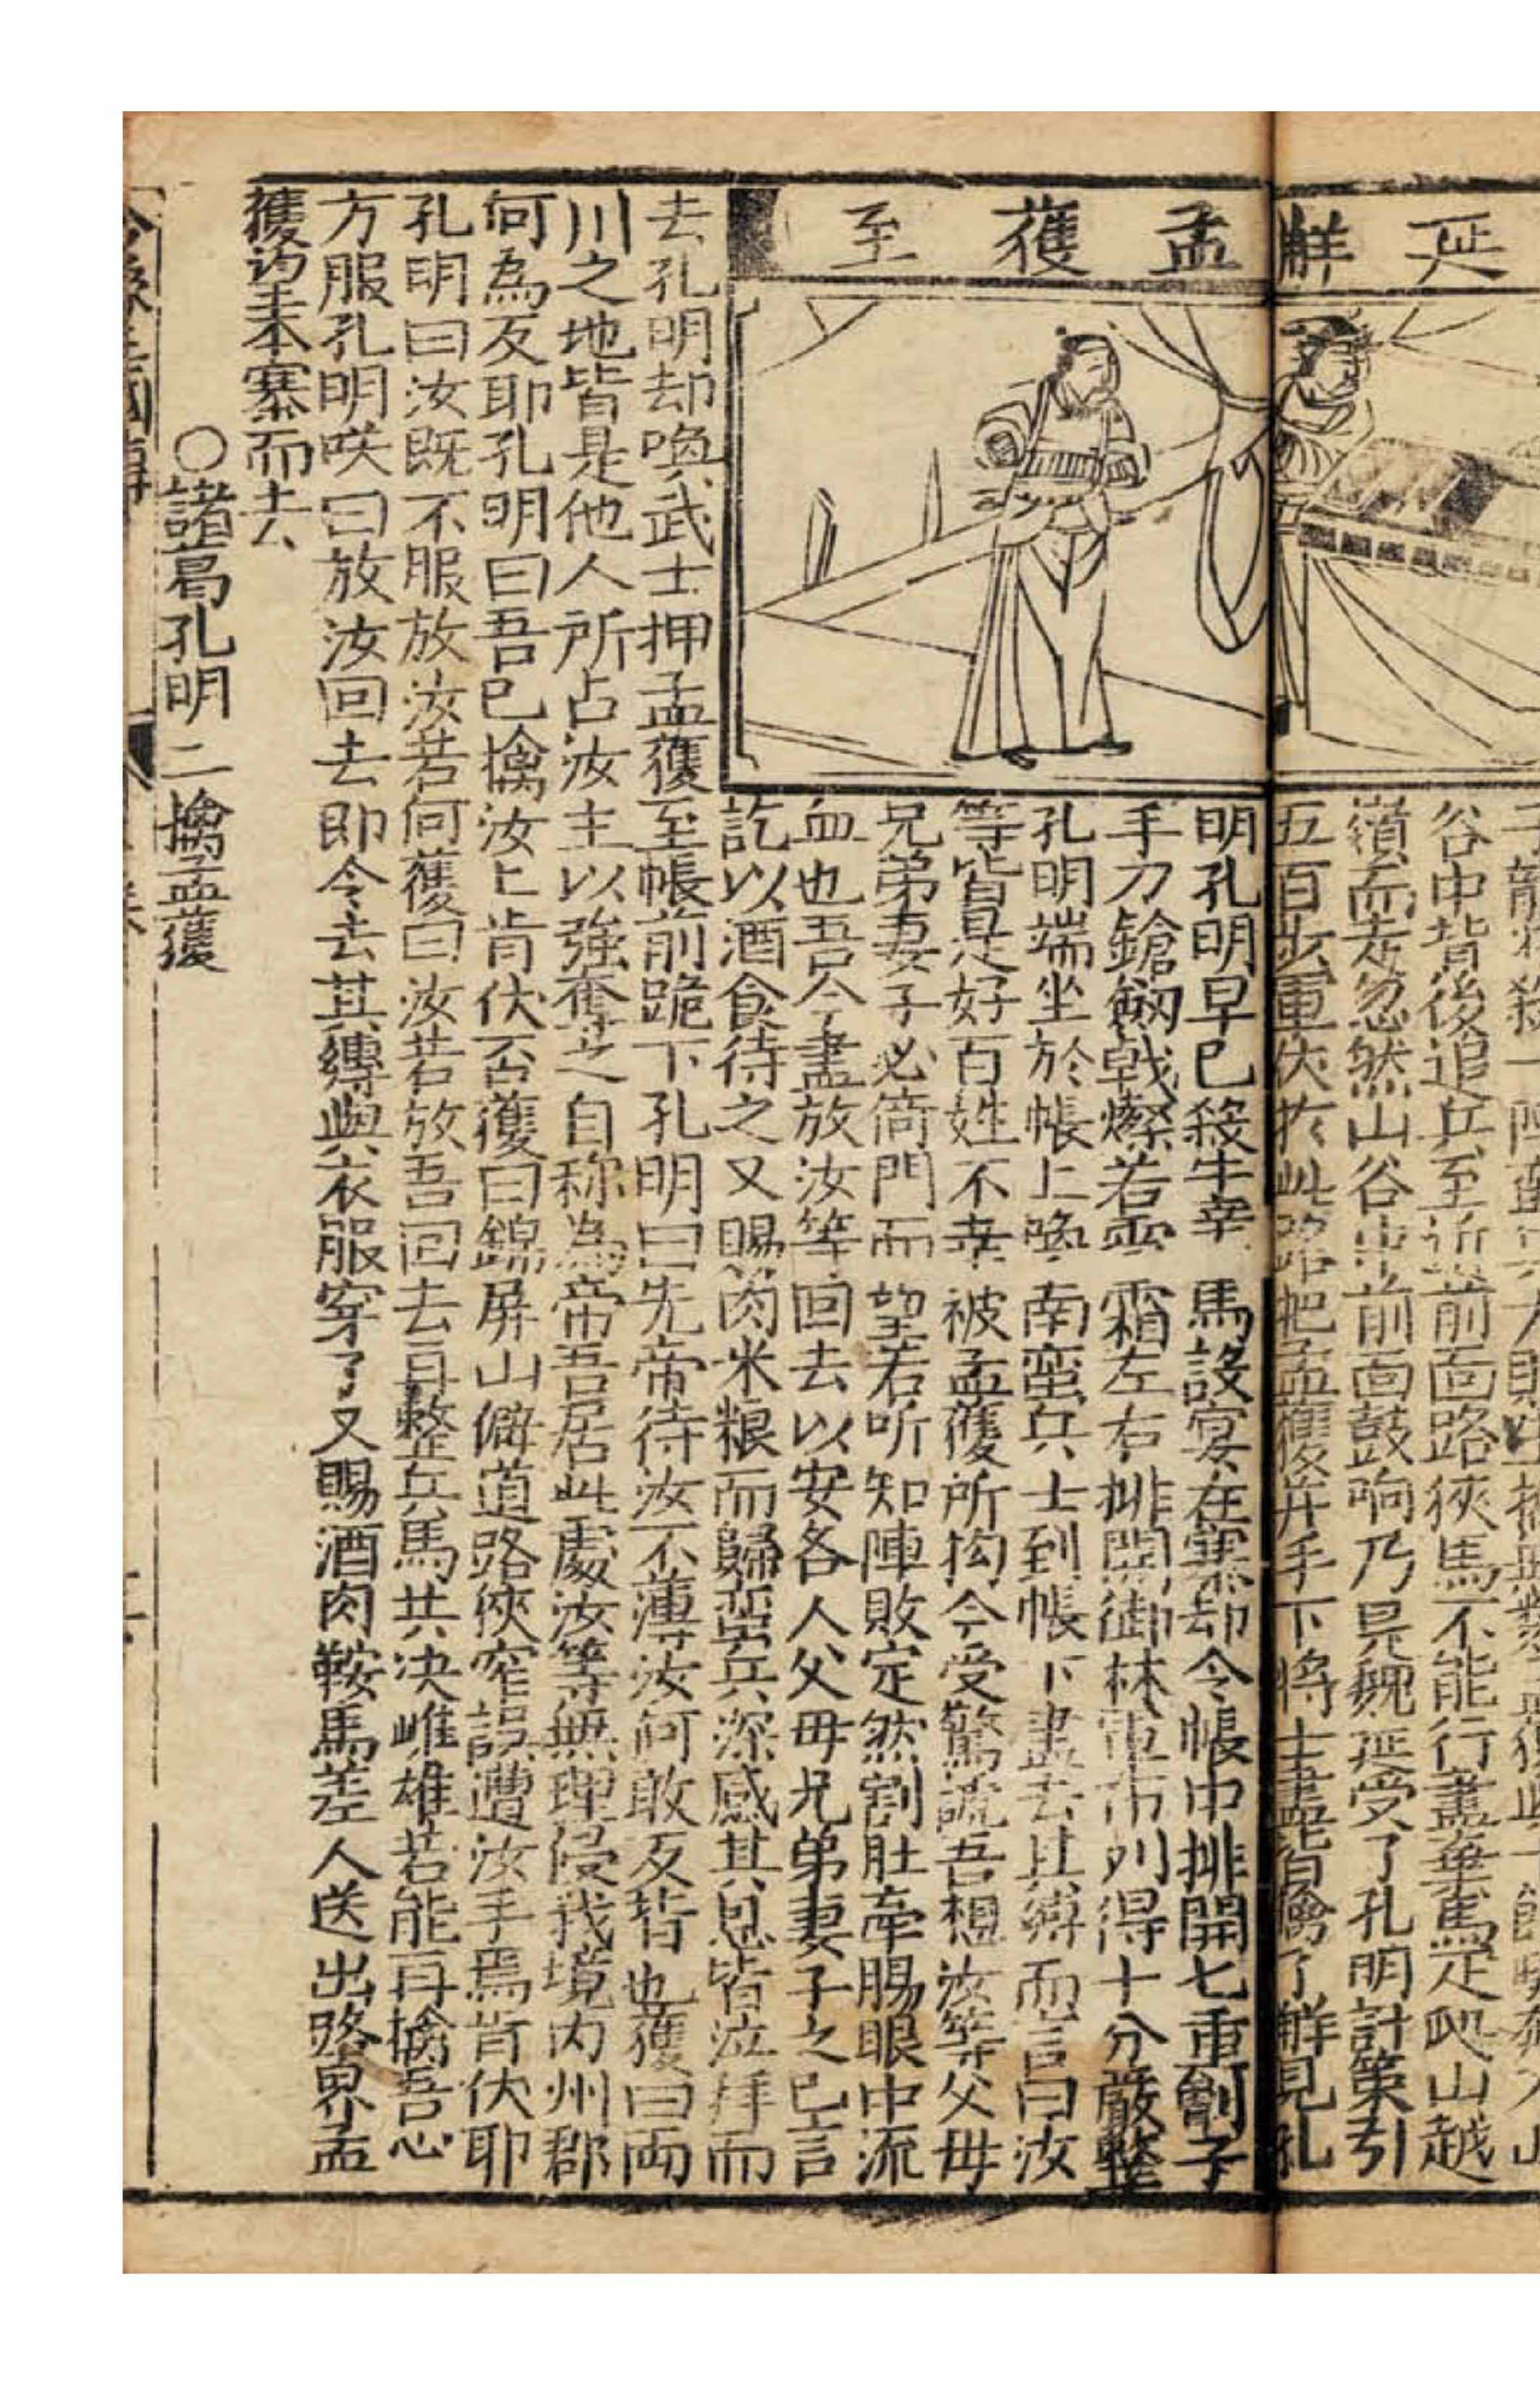 延觧
孟獲至
谷中背後追兵至近前面路狹馬不能行盡棄馬疋爬山越
嶺而走忽然山谷中前面鼓响乃是魏延受了孔明計策引
五百步軍伏於此路把孟獲并手下將士盡皆擒了觧見孔
明孔明早已殺牛宰馬設宴在寨却令帳中排開七重劊子
手刀鎗劔戟燦若雪霜左右排開御林軍布列得十分嚴整
孔明端坐於帳上喚南蛮兵士到帳下盡去其縛而言曰汝
等皆是好百姓不幸被孟獲所拘今受驚諕吾想汝等父母
兄弟妻子必倚門而望若听知陣敗定然割肚牽腸眼中流
血也吾今盡放汝等回去以安各人父母兄弟妻子之心言
訖以酒食待之又賜肉米粮而歸蛮兵深感其恩皆泣拜而
去孔明却喚武士押孟獲至帳前跪下孔明曰先帝待汝不薄汝何敢反背也獲曰両
川之地皆是他人所占汝主以強奪之自称為帝吾居此處汝等無理侵我境内州郡
何為反耶孔明曰吾已擒汝上肯伏否獲曰錦屏山僻道路狹窄誤遭汝手焉肯伏耶
孔明曰汝既不服放汝若何獲曰汝若放吾回去再整兵馬共决雌雄若能再擒吾心
方服孔明咲曰放汝回去即令去其縛與衣服穿了又賜酒肉鞍馬差人送出路界孟
獲汮本寨而去
○諸葛孔明二擒孟獲